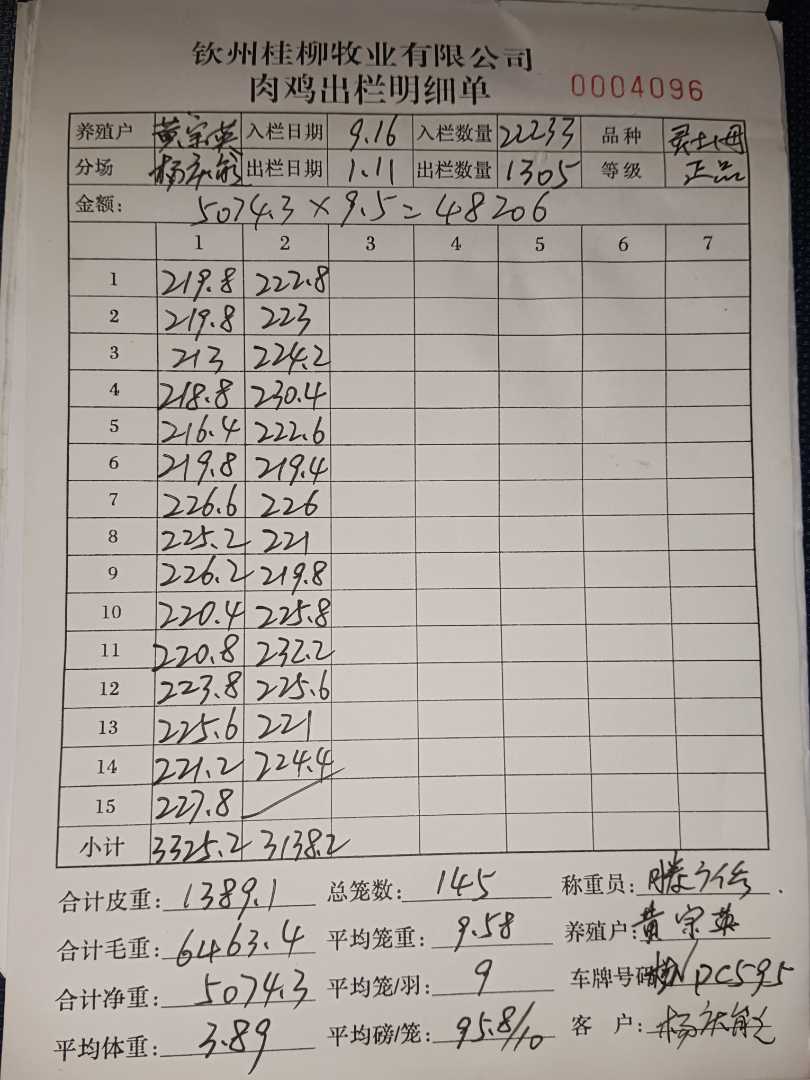 钦州桂柳牧业有限公司
肉鸡出栏明细单 0004096
养殖户 黄宗英 入栏日期 9.16 入栏数量 22233 品种 灵土母
分场 入栏日期 1.11 出栏数量 1305 等级 正品
金额: 5074.3×9.5=48206
1 2 3 4 5 6 7
1 219.8 222.8
2 219.8 223
3 213 224.2
4 218.8 230.4
5 216.4 222.6
6 219.8 219.4
7 226.6 226
8 225.2 221
9 226.2 219.8
10 220.4 225.8
11 220.8 232.2
12 223.8 225.6
13 225.6 221
14 221.2 224.4
15 227.8
小计 3325.2 3138.2
合计皮重: 1389.1 总笼数: 145 称重员:
合计毛重: 6463.4 平均笼重: 9.58 养殖户: 黄宗英
合计净重: 5074.3 平均笼/羽: 9 车牌号码: NPC595
平均体重: 3.89 平均磅/笼: 95.8/10 客户: